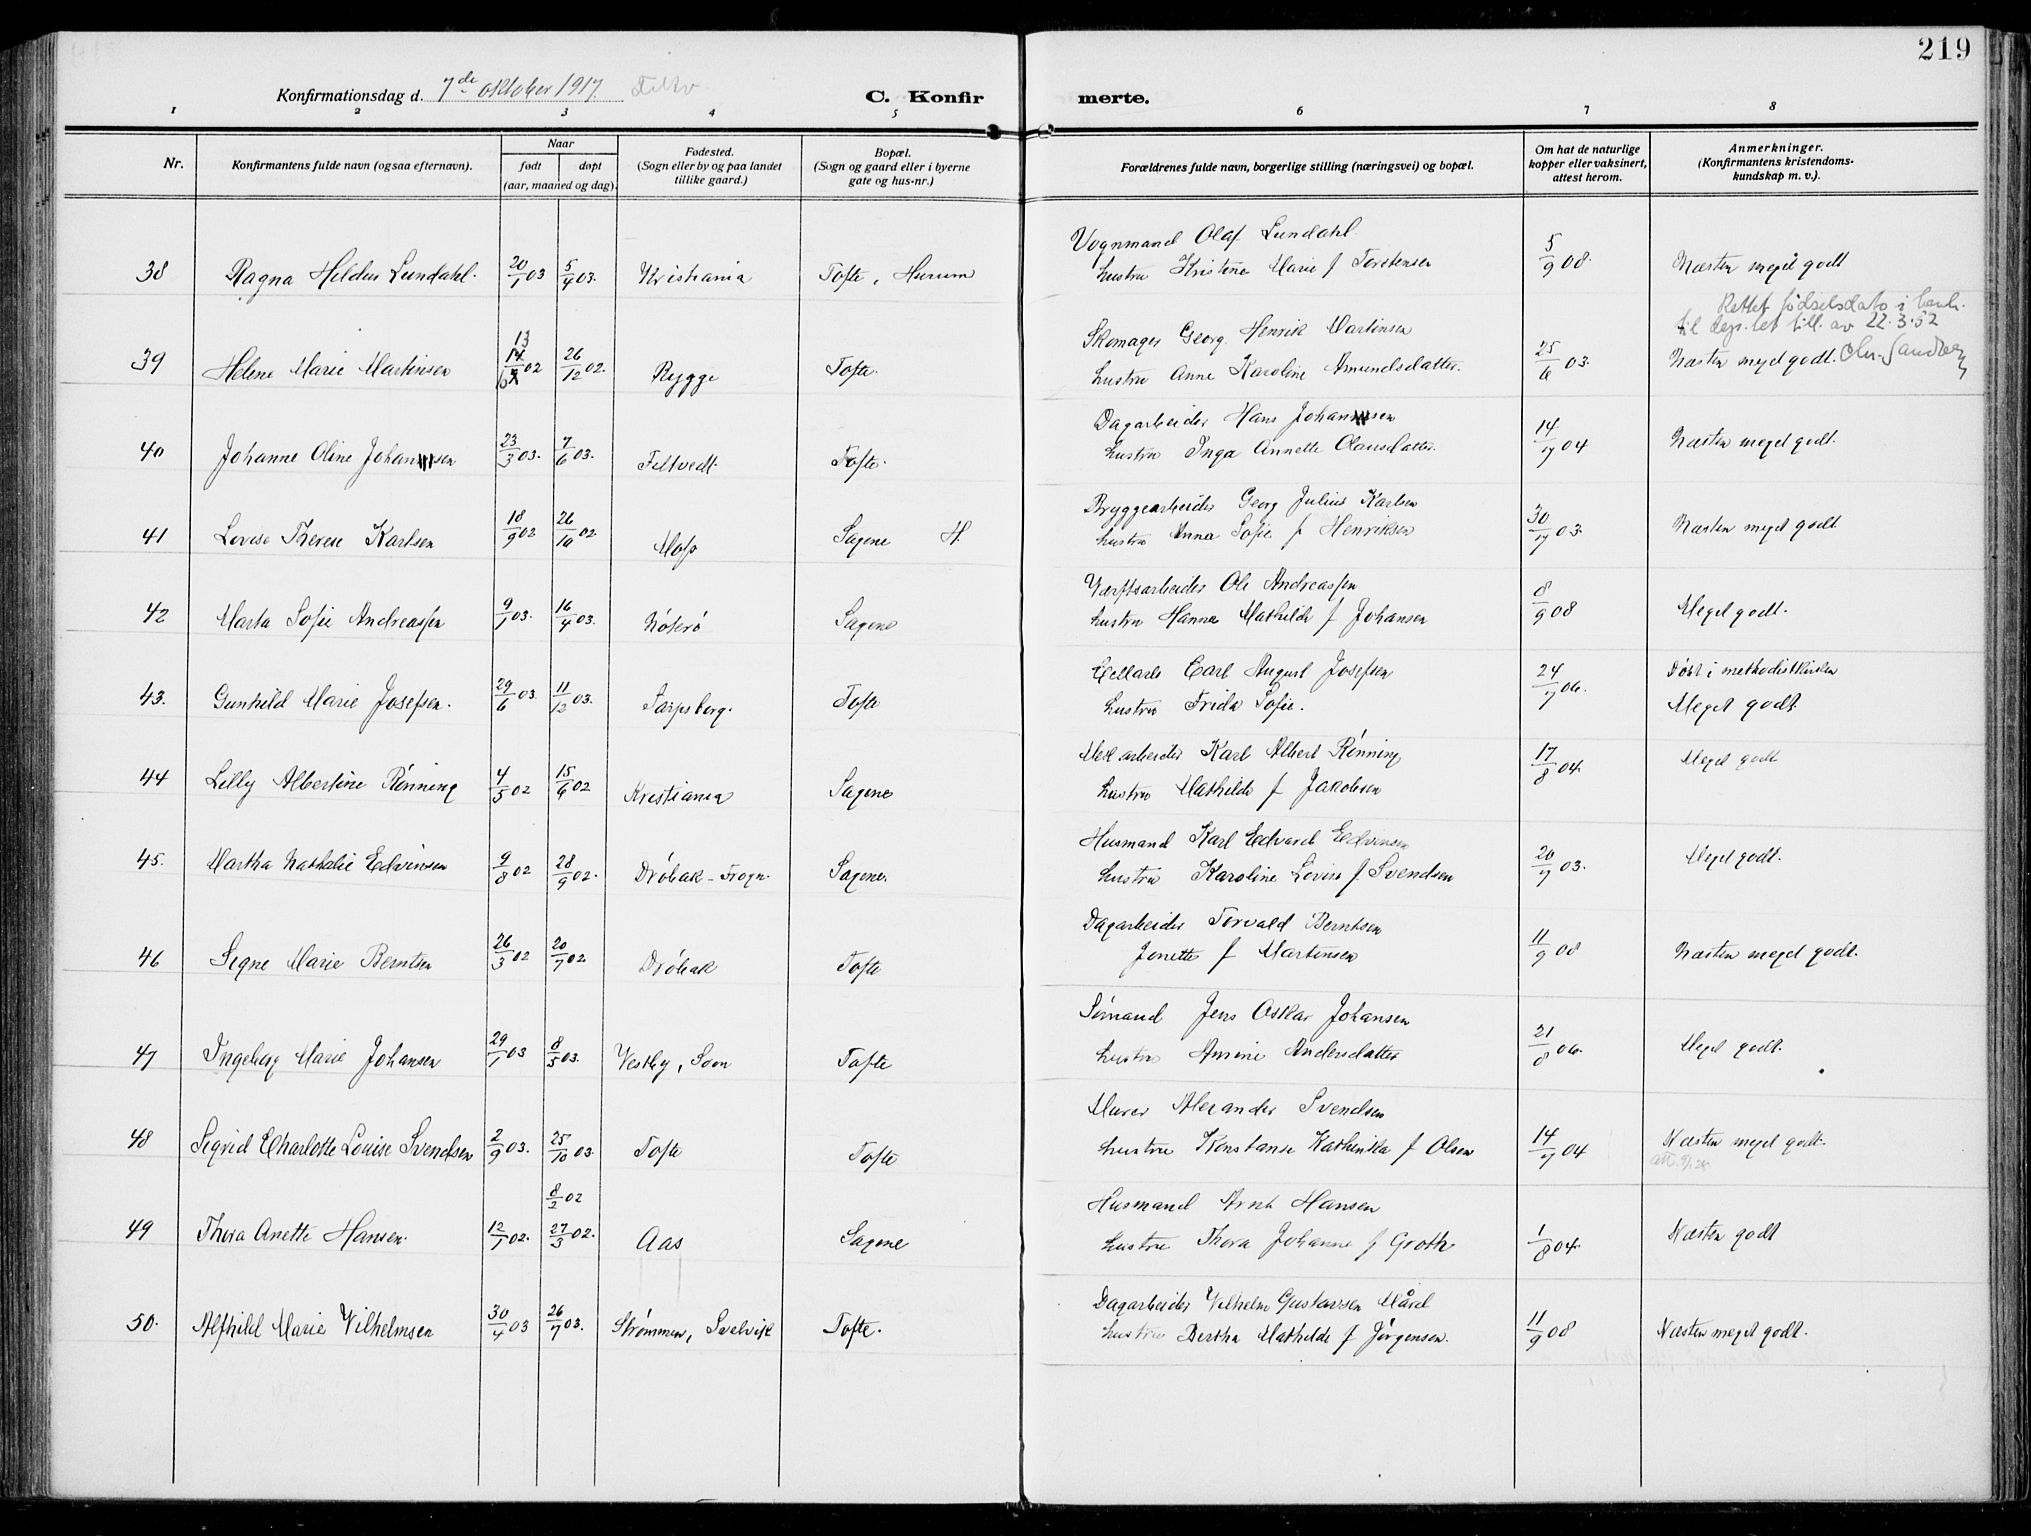 219
Konfirmationsdag d. 7de oktober 1917.
C. Konfirmerte.
1 2 3 4 5 6 7 8
Nr.
Konfirmantens fulde navn (ogsaa efternavn).
Naar
født
døpt
(aar, maaned og dag).
Fødested.
(Sogn eller by og paa landet
tillike gaard.)
Bopæl.
(Sogn og gaard eller i byerne
gate og hus-nr.)
Forældrenes fulde navn, borgerlige stilling (næringsvei) og bopæl.
Om hat de naturlige
kopper eller vaksinert,
attest herom.
Anmerkninger.
(Konfirmantens kristendoms-
kundskap m. v.).
Vognmand Olaf Lundahl
38 Ragna Hildur Lundahl. 20/1 03 5/4 03. Kristiania Tofte, Hurum hustru Kristine Marie f Torstensen 5/9 08. Næsten meget godt
Rettet fødselsdato i henh.
til dep.tet till. av 22.3.52
Skomager Georg Henrik Martinsen
13
39 Helene Marie Martinsen 14/6 02 26/12 02. Rygge Tofte. hustru Anne Karoline Amundsdatter. 25/6 03. Næsten meget godt. Chr. Sandberg
Dagarbeider Hans Johansen
40 Johanne Oline Johansen 23/3 03. 7/6 03. Filtvedt. Tofte. hustru Inga Annette Olausdatter. 14/7 04 Næsten meget godt.
Bryggearbeider Georg Julius Karlsen
41 Lovise Therese Karlsen 18/9 02 26/10 02 Moss Sagene H. hustru Anna Sofie f Henriksen 30/7 03. Næsten meget godt
Værftsarbeider Ole Andreassen
42 Marta Sofie Andreassen 9/1 03. 16/4 03. Nøterø Sagene hustru Hanna Mathilde f Johansen 8/9 08 Meget godt.
Carl August Josefsen Døbt i methodistkirken
43. Gunhild Marie Josefsen. 29/6 03. 11/12 03. Sarpsborg. Tofte hustru Frida Sofie. 24/7 06. Meget godt.
Mek arbeider Karl Albert Rønning
44 Lilly Albertine Rønning 4/5 02 15/6 02 Kristiania Sagene hustru Mathilde f Jakobsen 17/8 04. Meget godt
Husmand Karl Edvard Edvinsen
45. Martha Nathalie Edvinsen 9/8 02 28/9 02. Drøbak - Frogn. Sagene. hustru Karoline Lovise f. Svendsen 20/7 03. Meget godt.
Dagarbeider Torvald Berntsen
46 Signe Marie Berntsen 26/3 02 20/7 02 Drøbak Tofte Jenette f Martinsen 11/9 08 Næsten meget godt.
Sømand Jens Oskar Johansen
47 Ingeborg Marie Johansen 29/1 03 8/3 03. Vestby, Soon Tofte hustru Amine Andersdatter 21/8 06. Meget godt.
Murer Alexander Svendsen
48 Sigrid Charlotte Louise Svendsen 2/9 03. 25/10 03. Tofte Tofte hustru Konstanse Kathinka f Olsen 14/7 04 Næsten meget godt.
8/2 02
Husmand Arnt Hansen
49 Thora Anette Hansen. 12/1 02. 27/3 02. Aas Sagene hustru Thora Johanne f Groth 1/8 04. Næsten godt
Dagarbeider Vilhelm Gustavsen Mård
50. Alfhild Marie Vilhelmsen 30/4 03 26/7 03. Strømmen, Svelvik Tofte. hustru Bertha Mathilde f Jørgensen. 11/9 08 Næsten meget godt.